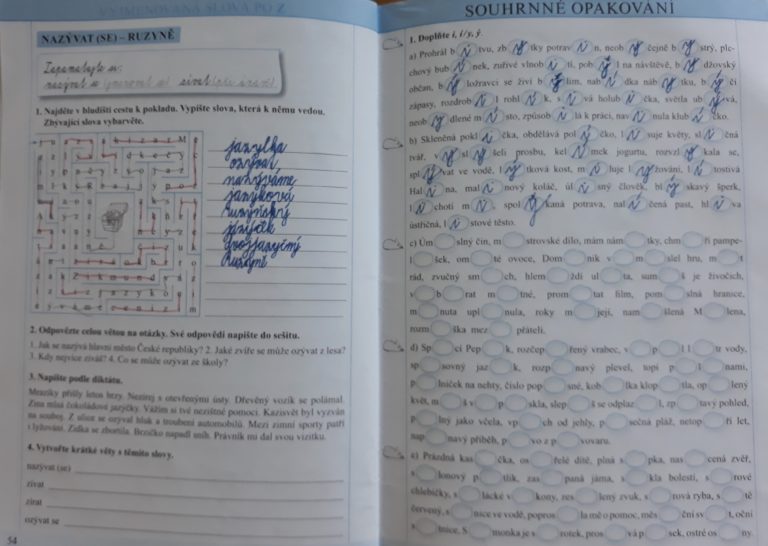 VYJMENOVANÁ SLOVA PO Z
NAZÝVAT (SE) – RUZYNĚ
Zapamatujte si:
1. Najděte v bludišti cestu k pokladu. Vypište slova, která k němu vedou.
Zbývající slova vybarvěte.
jazylka
ozývat
nazýváme
jazyková
ruzyňský
jazýček
brzojazyčný
Ruzyně
2. Odpovězte celou větou na otázky. Své odpovědi napište do sešitu.
1. Jak se nazývá hlavní město České republiky? 2. Jaké zvíře se může ozývat z lesa?
3. Kdy nejvíce zíváš? 4. Co se může ozývat ze školy?
3. Napište podle diktátu.
Mrazíky přišly letos brzy. Nezírej s otevřenými ústy. Dřevěný vozík se polámal.
Zina mlsá čokoládové jazýčky. Vážím si tvé nezištné pomoci. Kazisvět byl vyzván
na souboj. Z ulice se ozýval hluk a troubení automobilů. Mezi zimní sporty patří
i lyžování. Zídka se zbortila. Brzičko napadl sníh. Právník mi dal svou vizitku.
4. Vytvořte krátké věty s těmito slovy.
nazývat (se)
zívat
zírat
ozývat se
54
SOUHRNNÉ OPAKOVÁNÍ
1. Doplňte i, í/y, ý.
a) Prohrál b i tvu, zb y tky potrav i n, neob y čejně b y strý, ple-
chový bub í nek, zuřivé vlnob i tí, pob ý l na návštěvě, b y džovský
občan, b ý ložravci se živí b ý lím, nab í dka náb y tku, b ý čí
zápasy, rozdrob i l rohl í k, s i vá holub i čka, světla ub ý vá,
neob y dlené m í sto, způsob i lá k práci, nav i nula klub í čko.
b) Skleněná pokl i čka, obdělává pol í čko, l i suje květy, sl i čná
tvář, v y sl y šeli prosbu, kel í mek jogurtu, rozvzl y kala se,
spl ý vat ve vodě, l ý tková kost, m i luje l y žování, l i tostivá
Hal i na, mal i nový koláč, úl i sný člověk, bl ý skavý šperk,
l i chotí m i, spol y kaná potrava, nal í čená past, hl í va
ústřičná, l i stové těsto.
c) Úm slný čin, m strovské dílo, mám nám tky, chm ří pampe-
l šek, om té ovoce, Dom nik v m slel hru, m t
rád, zvučný sm ch, hlem ždí ul ta, sum š je živočich,
v b rat m tné, prom tat film, pom slná hranice,
m nuta upl nula, roky m její, nam šlená M lena,
rozm ška mez přáteli.
d) Sp cí Pep k, rozčep řený vrabec, v p l l tr vody,
sp sovný jaz k, rozp navý plevel, topí p l nami,
p lníček na nehty, číslo pop sné, kob lka klop tla, op lený
květ, m š v p skla, slep š se odplaz l, zp tavý pohled,
p lný jako včela, vp ch od jehly, p sečná pláž, netop ří let,
nap navý příběh, p vo z p vovaru.
e) Prázdná kas čka, os řelé dítě, plná s pka, nas cená zvěř,
s lonový p tlík, zas paná jáma, s kla bolestí, s rové
chlebíčky, s lácké v kony, zes lený zvuk, s rová ryba, s tě
červený, s nice ve vodě, popros la mě o pomoc, měs ční sv t, oční
s tnice. S munka je s rotek, pros vá p sek, ostré os ny.